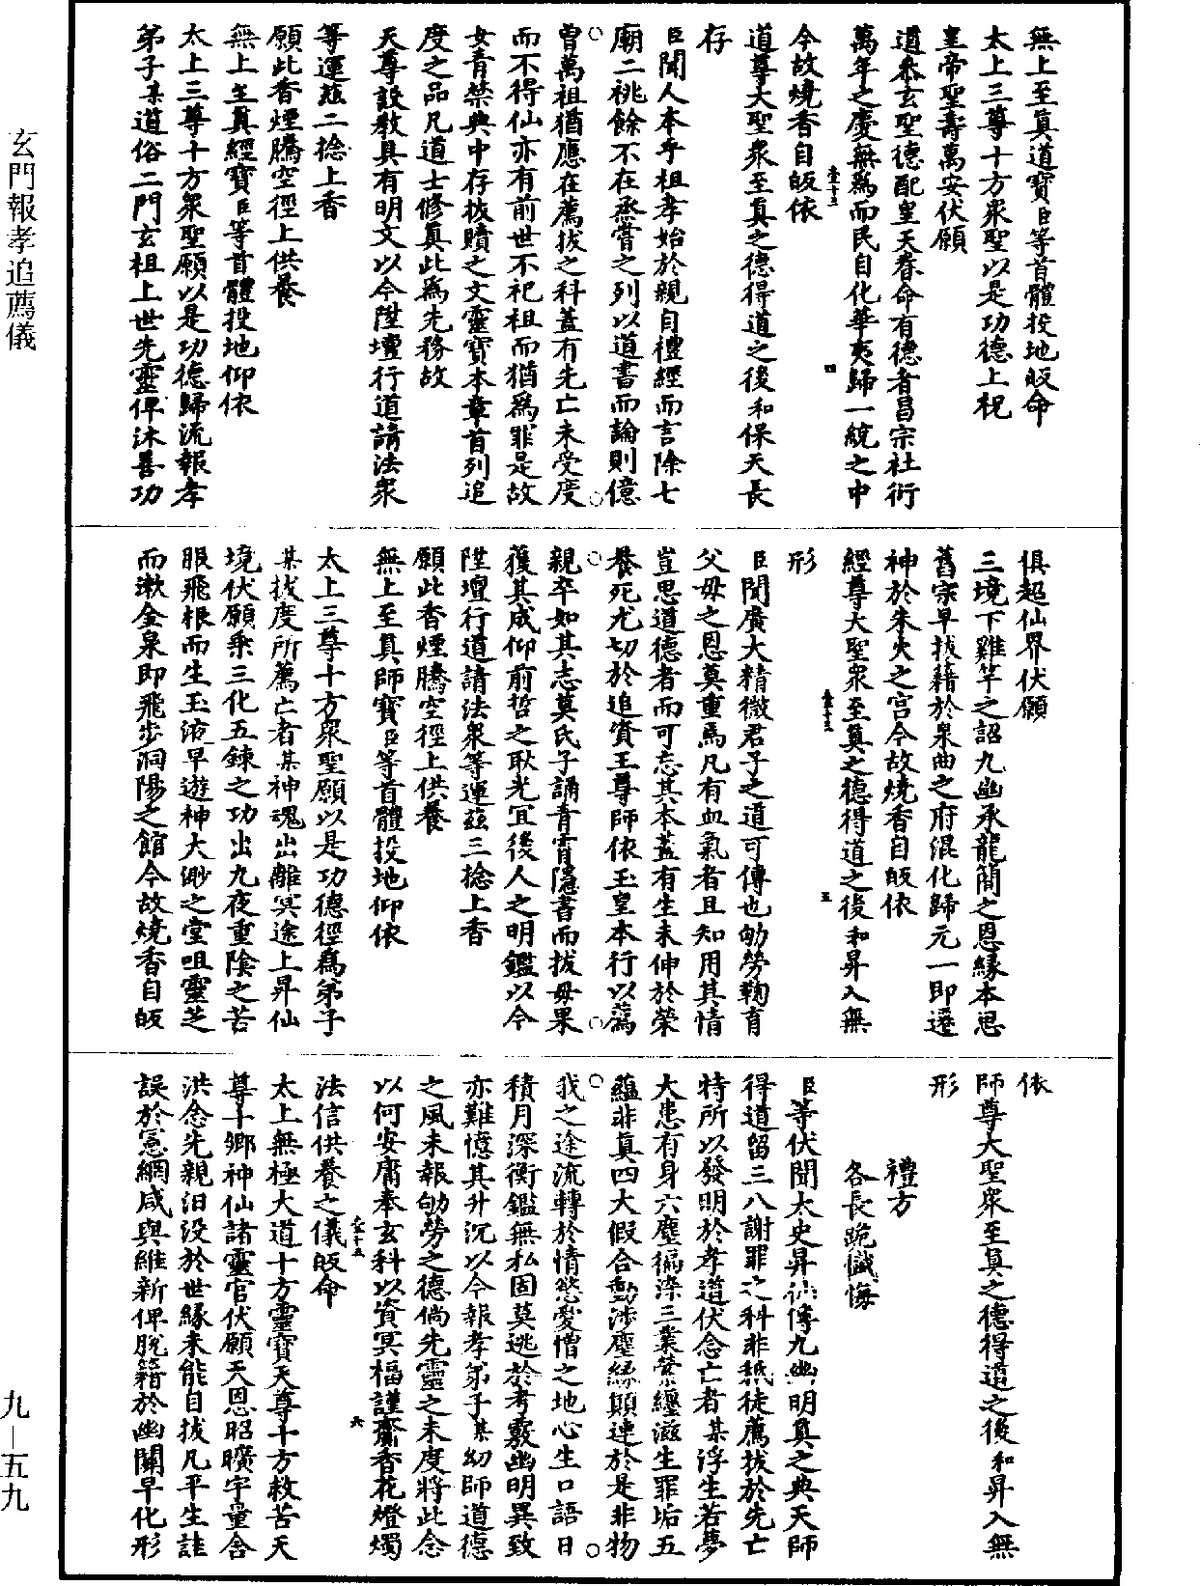 無上至真道寶臣等首體投地皈命
太上三尊十方衆聖以是功德上祝
皇帝聖壽萬安伏願
道叅玄聖德配皇天眷命有德者昌宗社衍
萬年之慶無爲而民自化華夷歸一統之中
今故燒香自皈依
道尊大聖衆至真之德得道之後和保天長
存
臣聞人本乎祖孝始於親自禮經而言除七
廟二祧餘不在烝嘗之列以道書而論則億
曾萬祖猶應在薦拔之科蓋有先亡未受度
而不得仙亦有前世不祀祖而猶爲罪是故
女青禁典中存拔贖之文靈寶本章首列追
度之品凡道士修真此爲先務故
天尊設教具有明文以今陞壇行道請法衆
等運茲二捻上香
願此香煙騰空徑上供養
無上至真經寶臣等首體投地仰依
太上三尊十方衆聖願以是功德歸流報孝
弟子某道俗二門玄祖上世先靈俾沐善功
俱超仙界伏願
三境下雞竿之詔九幽承龍簡之恩緣本思
舊宗早拔籍於泉曲之府混化歸元一即遷
神於朱火之宮今故燒香自皈依
經尊大聖衆至真之德得道之後和昇入無
形
臣聞廣大精微君子之道可傳也劬勞鞠育
父母之恩莫重焉凡有血氣者且知用其情
豈思道德者而可忘其本蓋有生未伸於榮
養死尤切於追資王尊師依玉皇本行以薦
親卒如其志莫氏子誦青霄隱書而拔母果
獲其成仰前哲之耿光宜後人之明鑑以今
陞壇行道請法衆等運茲三捻上香
願此香煙騰空徑上供養
無上至真師寶臣等首體投地仰依
太上三尊十方衆聖願以是功德徑爲弟子
某拔度所薦亡者某神魂出離冥途上昇仙
境伏願乘三化五鍊之功出九夜重陰之苦
服飛根而生玉液早遊神大渺之堂咀靈芝
而漱金泉即飛步洞陽之館今故燒香自皈
依
師尊大聖衆至真之德得道之後和昇入無
形
禮方
各長跪懺悔
臣等伏聞太史昇仙傳九幽明真之典天師
得道留三八謝罪之科非秪徒薦拔於先亡
特所以發明於孝道伏念亡者某浮生若夢
大患有身六塵徧染三業縈纏滋生罪垢五
蘊非真四大假合動涉塵緣顛連於是非物
我之途流轉於情慾愛憎之地心生口語日
積月深衡鑑無私固莫逃於考覈幽明異致
亦難憶其升沉以今報孝弟子某幼師道德
之風未報劬勞之德倘先靈之未度將此念
以何安庸奉玄科以資冥福謹齋香花燈燭
法信供養之儀皈命
太上無極大道十方靈寶天尊十方救苦天
尊千鄉神仙諸靈官伏願天恩昭曠宇量含
洪念先親汨没於世緣未能自拔凡平生詿
誤於憲網咸與維新俾脫籍於幽關早化形
玄門報孝追薦儀
九—五九